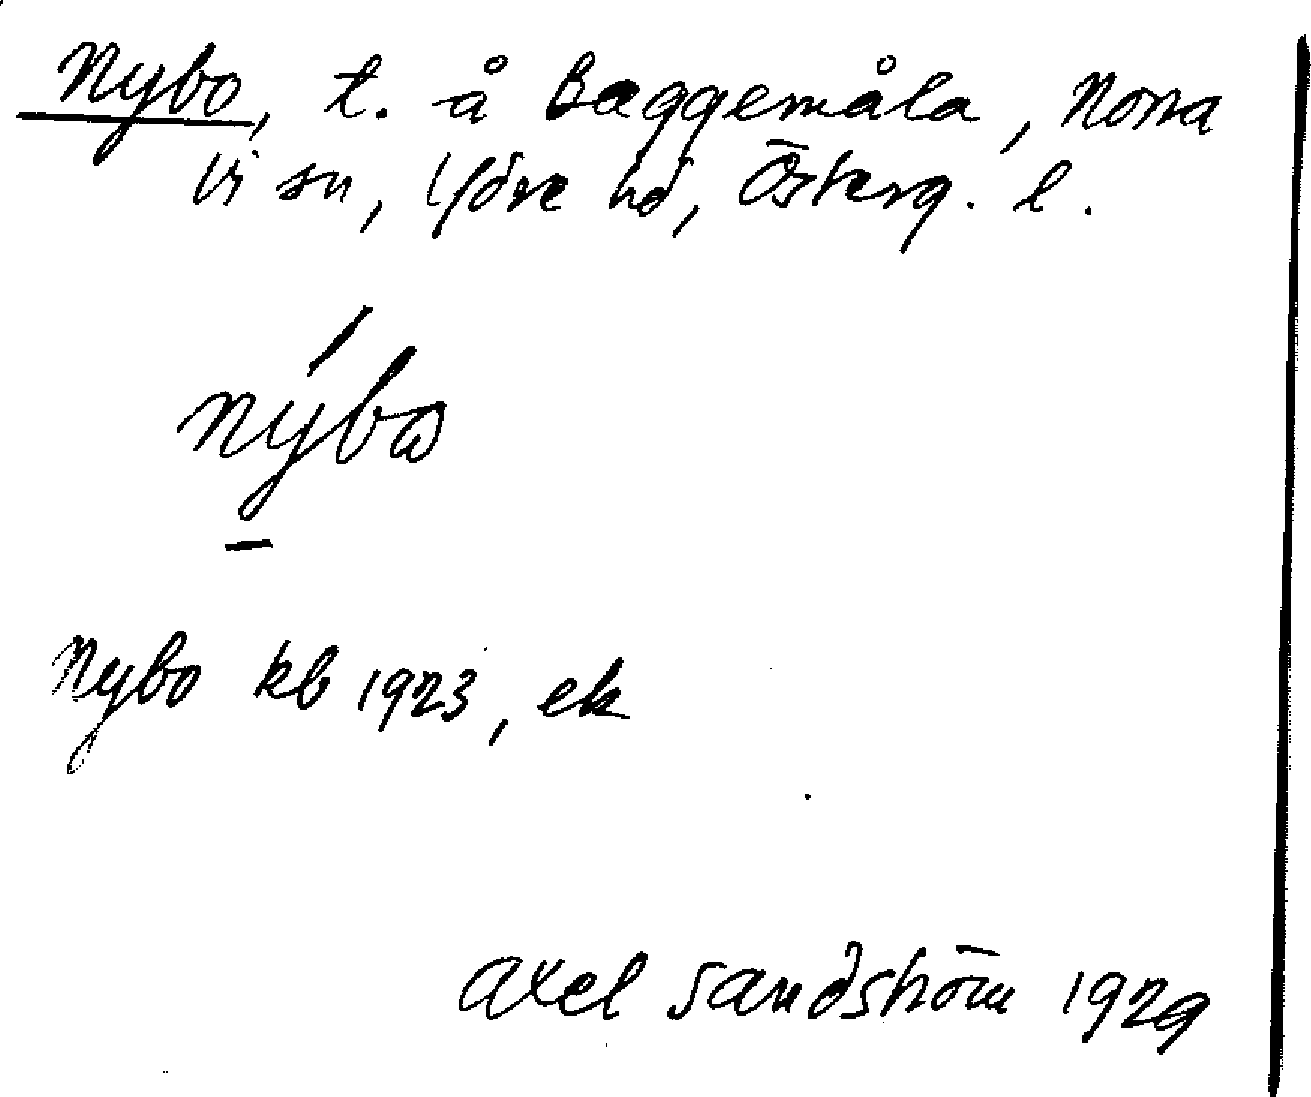 Nybo, t. å Baggemåla, Norra
Vi sn, Ydre hd, Österg. l.
nýbω
Nybo kb 1923, ek
Axel Sandström 1929